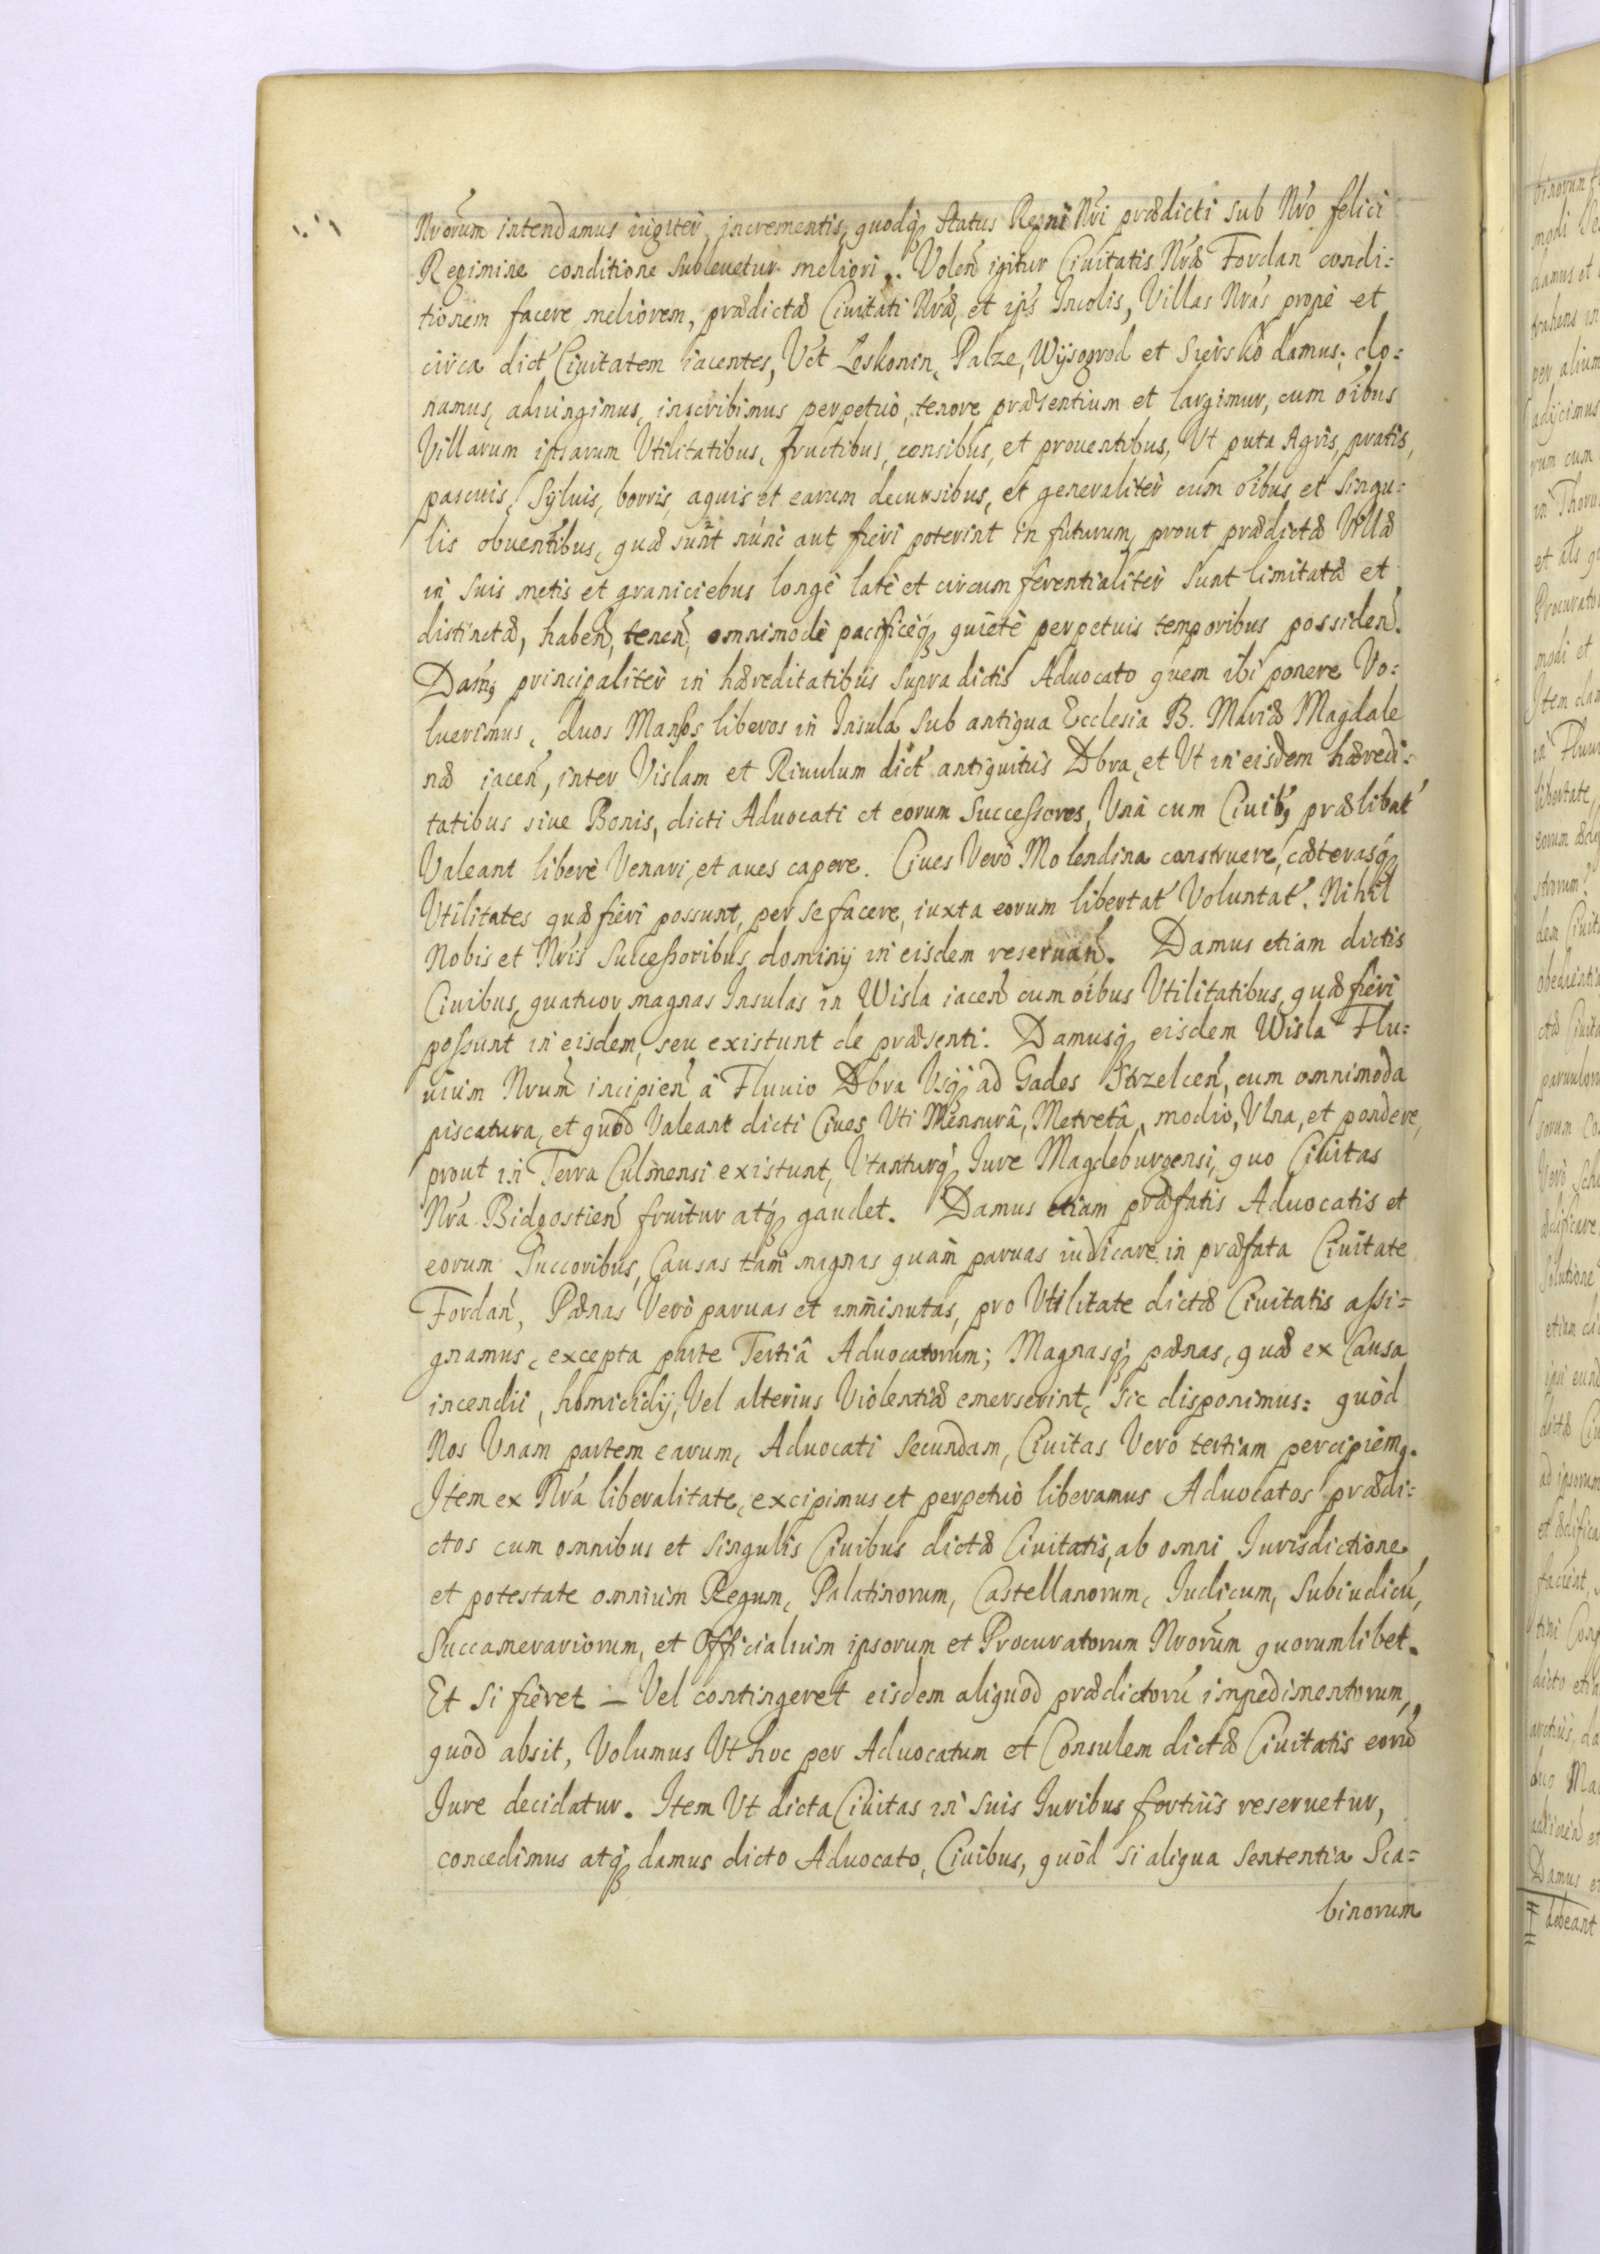 Nrorum intendamus iugiter, incrementis, quodq; status Regni Nri prædicti sub Nro felici
Regimine conditione subleuetur meliori. Volen igitur Ciuitatis Nræ Fordan condi:
tionem facere meliorem, prædictæ Ciuitati Nræ, et ips Incolis, Villas Nras propè et
circa dict Ciuitatem iacentes, Vct Loskonin, Palze, Wysogrod et Siersko damus, do:
namus, adiungimus, inscribimus perpetuò, tenore præsentium et largimur, cum oibus
Villarum ipsarum Vtilitatibus, fructibus, censibus, et prouentibus, Vt puta Agris, pratis,
pascuis, Syluis, borris, aquis et earum decursibus, et generaliter cum oibus et singu:
lis obuentibus, quæ sunt nunc aut fieri poterint in futurum, prout prædictæ Villæ
in suis metis et graniciebus longè latè et circumferentialiter sunt limitatæ et
distinctæ, haben, tenen, omnimodè pacificeq; quietè perpetuis temporibus possiden.
Dam9 principaliter in hæreditatibus supra dictis Aduocato quem ibi ponere Vo:
luerimus, duos Mansos liberos in Insula sub antiqua Ecclesia B. Mariæ Magdale
næ iacen, inter Vislam et Riuulum dict antiquitus Dbra, et Vt in eisdem hæredi:
tatibus siue Bonis, dicti Aduocati et eorum Successores, Vnà cum Ciuib9 prælibat
Valeant liberè Venari, et aues capere. Ciues Verò Molendina construere, cæterasq;
Vtilitates quæ fieri possunt, per se facere, iuxta eorum libertat Voluntat. Nihil
Nobis et Nris Successoribus dominij in eisdem reseruan. Damus etiam dictis
Ciuibus, quatuor magnas Insulas in Wisla iacen cum oibus Vtilitatibus, quæ fieri
possunt in eisdem, seu existunt de præsenti. Damusq; eisdem Wisla Flu:
uium Nrum incipien à Fluuio Dbra Vsq; ad Gades Strzelcen, cum omnimoda
piscatura, et quòd Valeant dicti Ciues Vti Mensurâ, Metretâ, modio, Vlna, et pondere,
prout in Terra Culmensi existunt, Vtanturq; Iure Magdeburgensi, quo Ciuitas
Nra Bidgostien fruitur atq; gaudet. Damus etiam præfatis Aduocatis et
eorum Succoribus, Causas tam magnas quàm paruas iudicare in præfata Ciuitate
Fordan, Pænas Verò paruas et imminutas, pro Vtilitate dictæ Ciuitatis assi=
gnamus, excepta parte Tertiâ Aduocatorum; Magnasq; pænas, quæ ex Causa
incendii, homicidij, Vel alterius Violentiæ emerserint, sic disponimus: quòd
Nos Vnam partem earum, Aduocati secundam, Ciuitas Verò tertiam percipiem9.
Item ex Nra liberalitate, excipimus et perpetuò liberamus Aduocatos prædi:
ctos cum omnibus et singulis Ciuibus dictæ Ciuitatis, ab omni Iurisdictione
et potestate omnium Regum, Palatinorum, Castellanorum, Iudicum, Subiudicu,
Succamerariorum, et Officialium ipsorum et Procuratorum Nrorum quorumlibet.
Et si fieret – Vel contingeret eisdem aliquod prædictoru impedimentorum,
quod absit, Volumus Vt hoc per Aduocatum et Consulem dictæ Ciuitatis eoru
Iure decidatur. Item Vt dicta Ciuitas in suis Iuribus fortius reseruetur,
concedimus atq; damus dicto Aduocato, Ciuibus, quòd si aliqua sententia Sca=
binorum